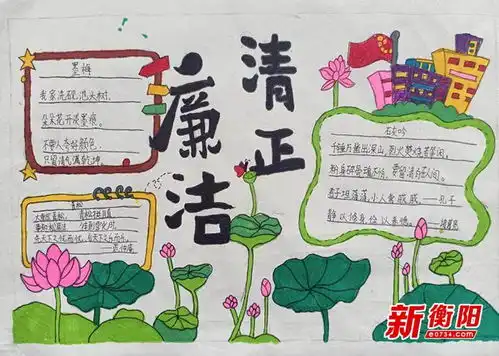 清正
廉洁
墨梅
我家洗砚池头树,
朵朵花开淡墨痕。
不要人夸好颜色,
只留清气满乾坤。
青松
石灰吟
千锤万凿出深山,烈火焚烧若等闲,
粉身碎骨浑不怕,要留清白在人间。
君子坦荡荡,小人常戚戚。——孔子
静以修身,俭以养德。——诸葛亮
新衡阳
e0734.com